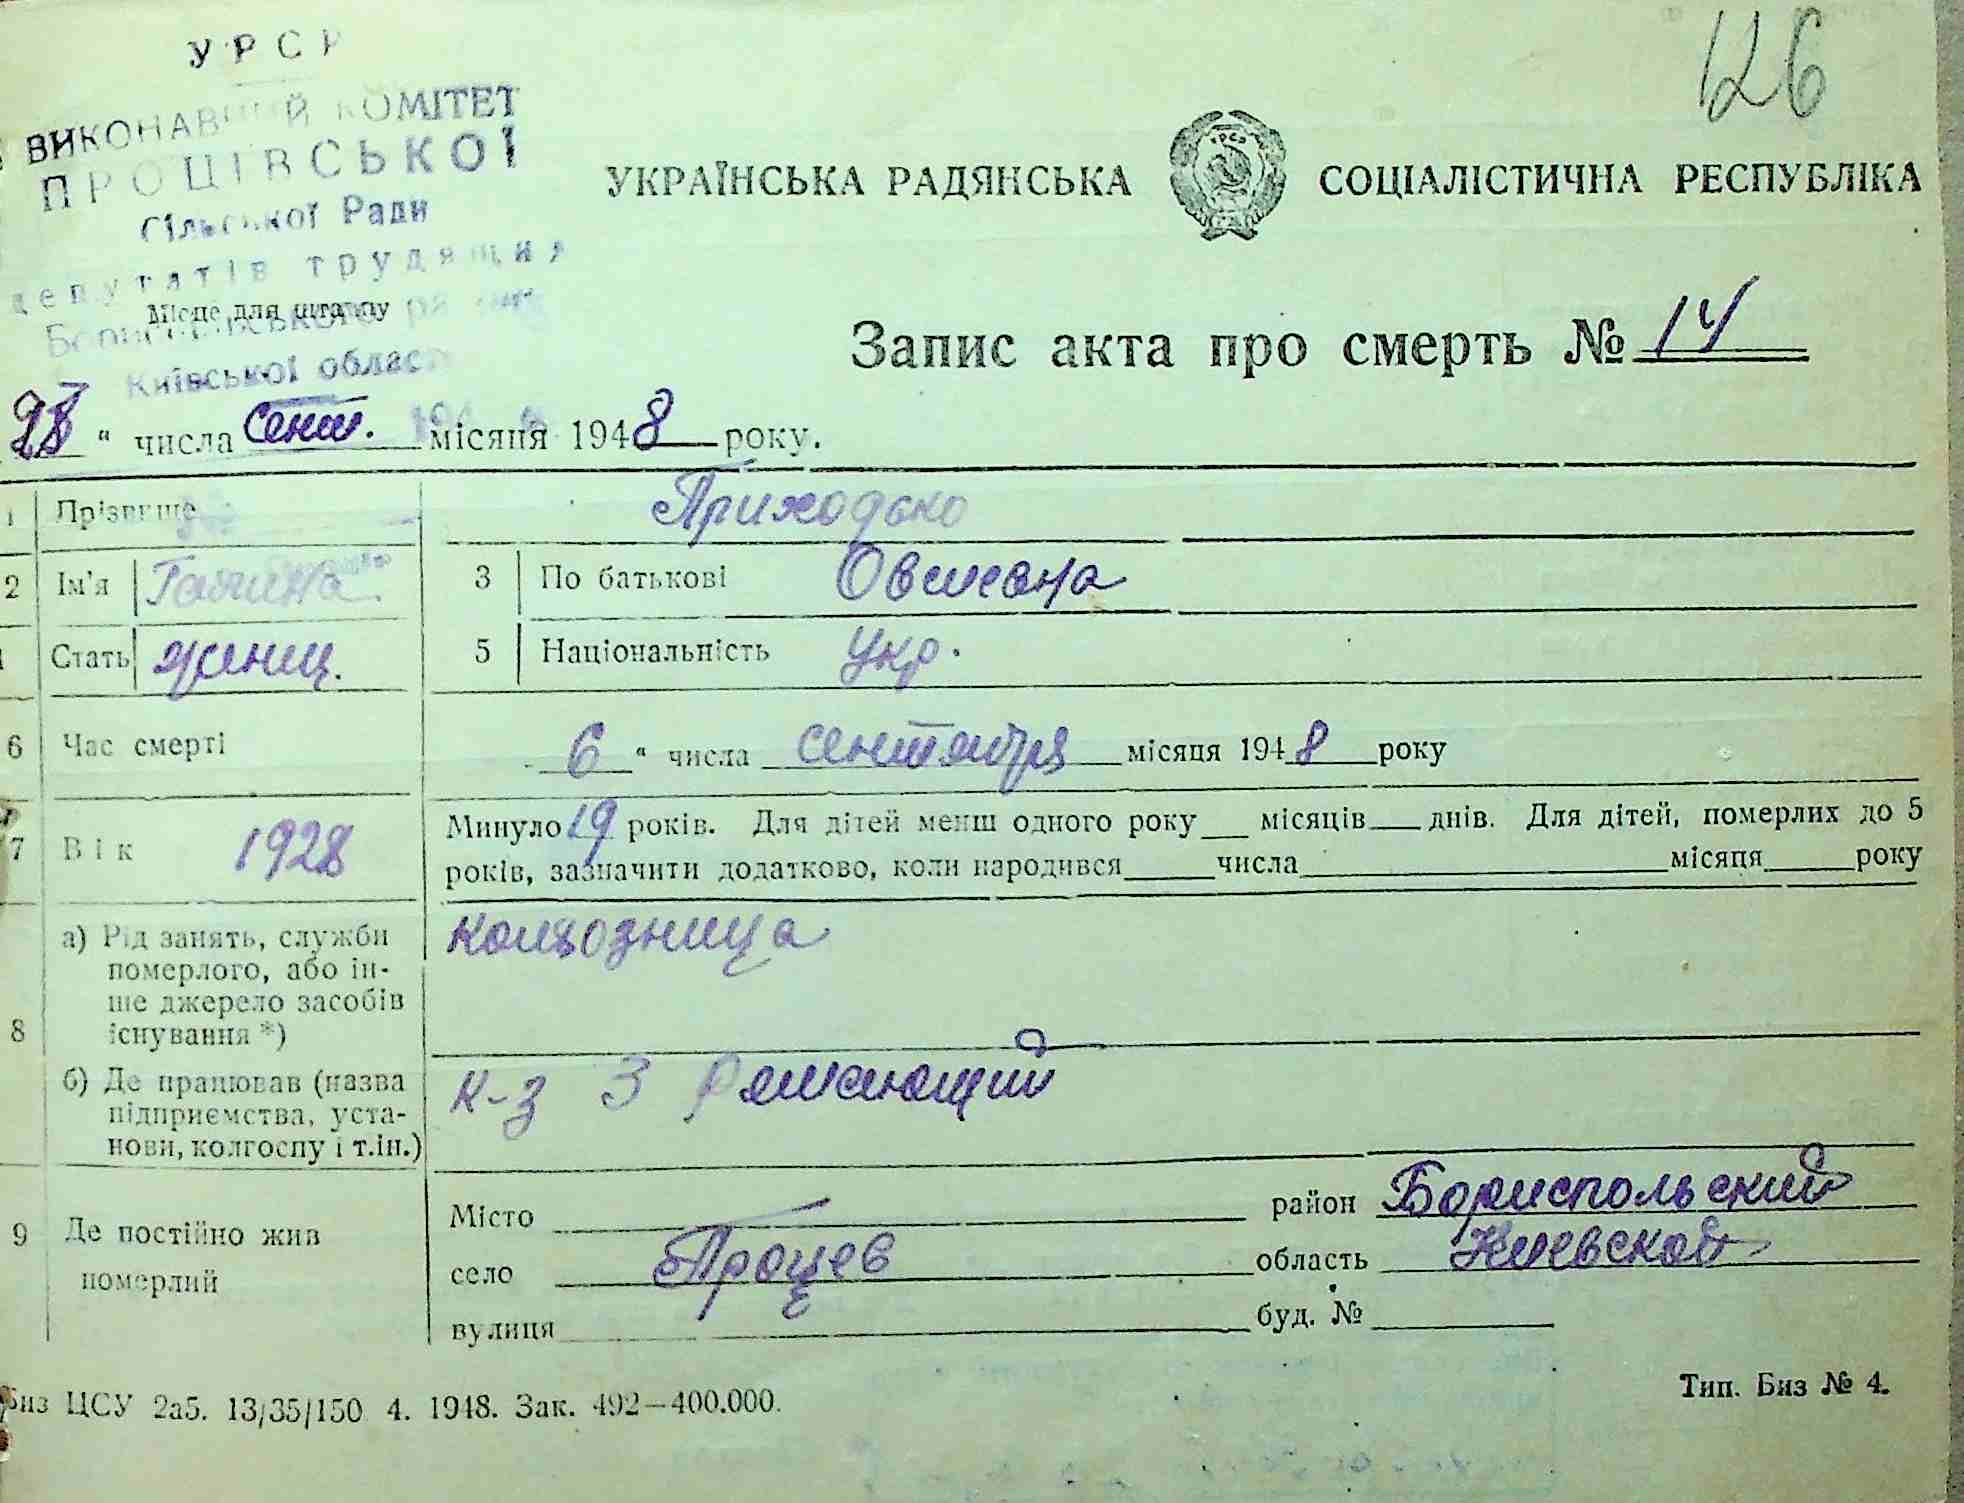 УРСР
126
ВИКОНАВЧИЙ КОМІТЕТ
ПРОЦІВСЬКОЇ
Сільської Ради
депутатів трудящих
Місце для штампу
Бориспільського
Київської област
УКРАЇНСЬКА РАДЯНСЬКА СОЦІАЛІСТИЧНА РЕСПУБЛІКА
Запис акта про смерть № 14
28 " числа сент. місяця 1948 року.
1 Прізвище Приходько
2 Ім'я Галина 3 По батькові
Стать женщ. 5 Національність Укр.
6 Час смерті 6 " числа сентября місяця 1948 року
7 Вік 1928 Минуло 19 років. Для дітей менш одного року місяців днів. Для дітей, померлих до 5
років, зазначити додатково, коли народився числа місяця року
8 а) Рід занять, служби
померлого, або ін-
ше джерело засобів
існування *)
колхозница
б) Де працював (назва
підприємства, уста-
нови, колгоспу і т.ін.)
к-з 3 Решающий
9 Де постійно жив
померлий
Місто район Бориспольский
село Процев область Киевской
вулиця буд. №
Биз ЦСУ 2а5. 13/35/150 4. 1948. Зак. 492—400.000.
Тип. Биз № 4.